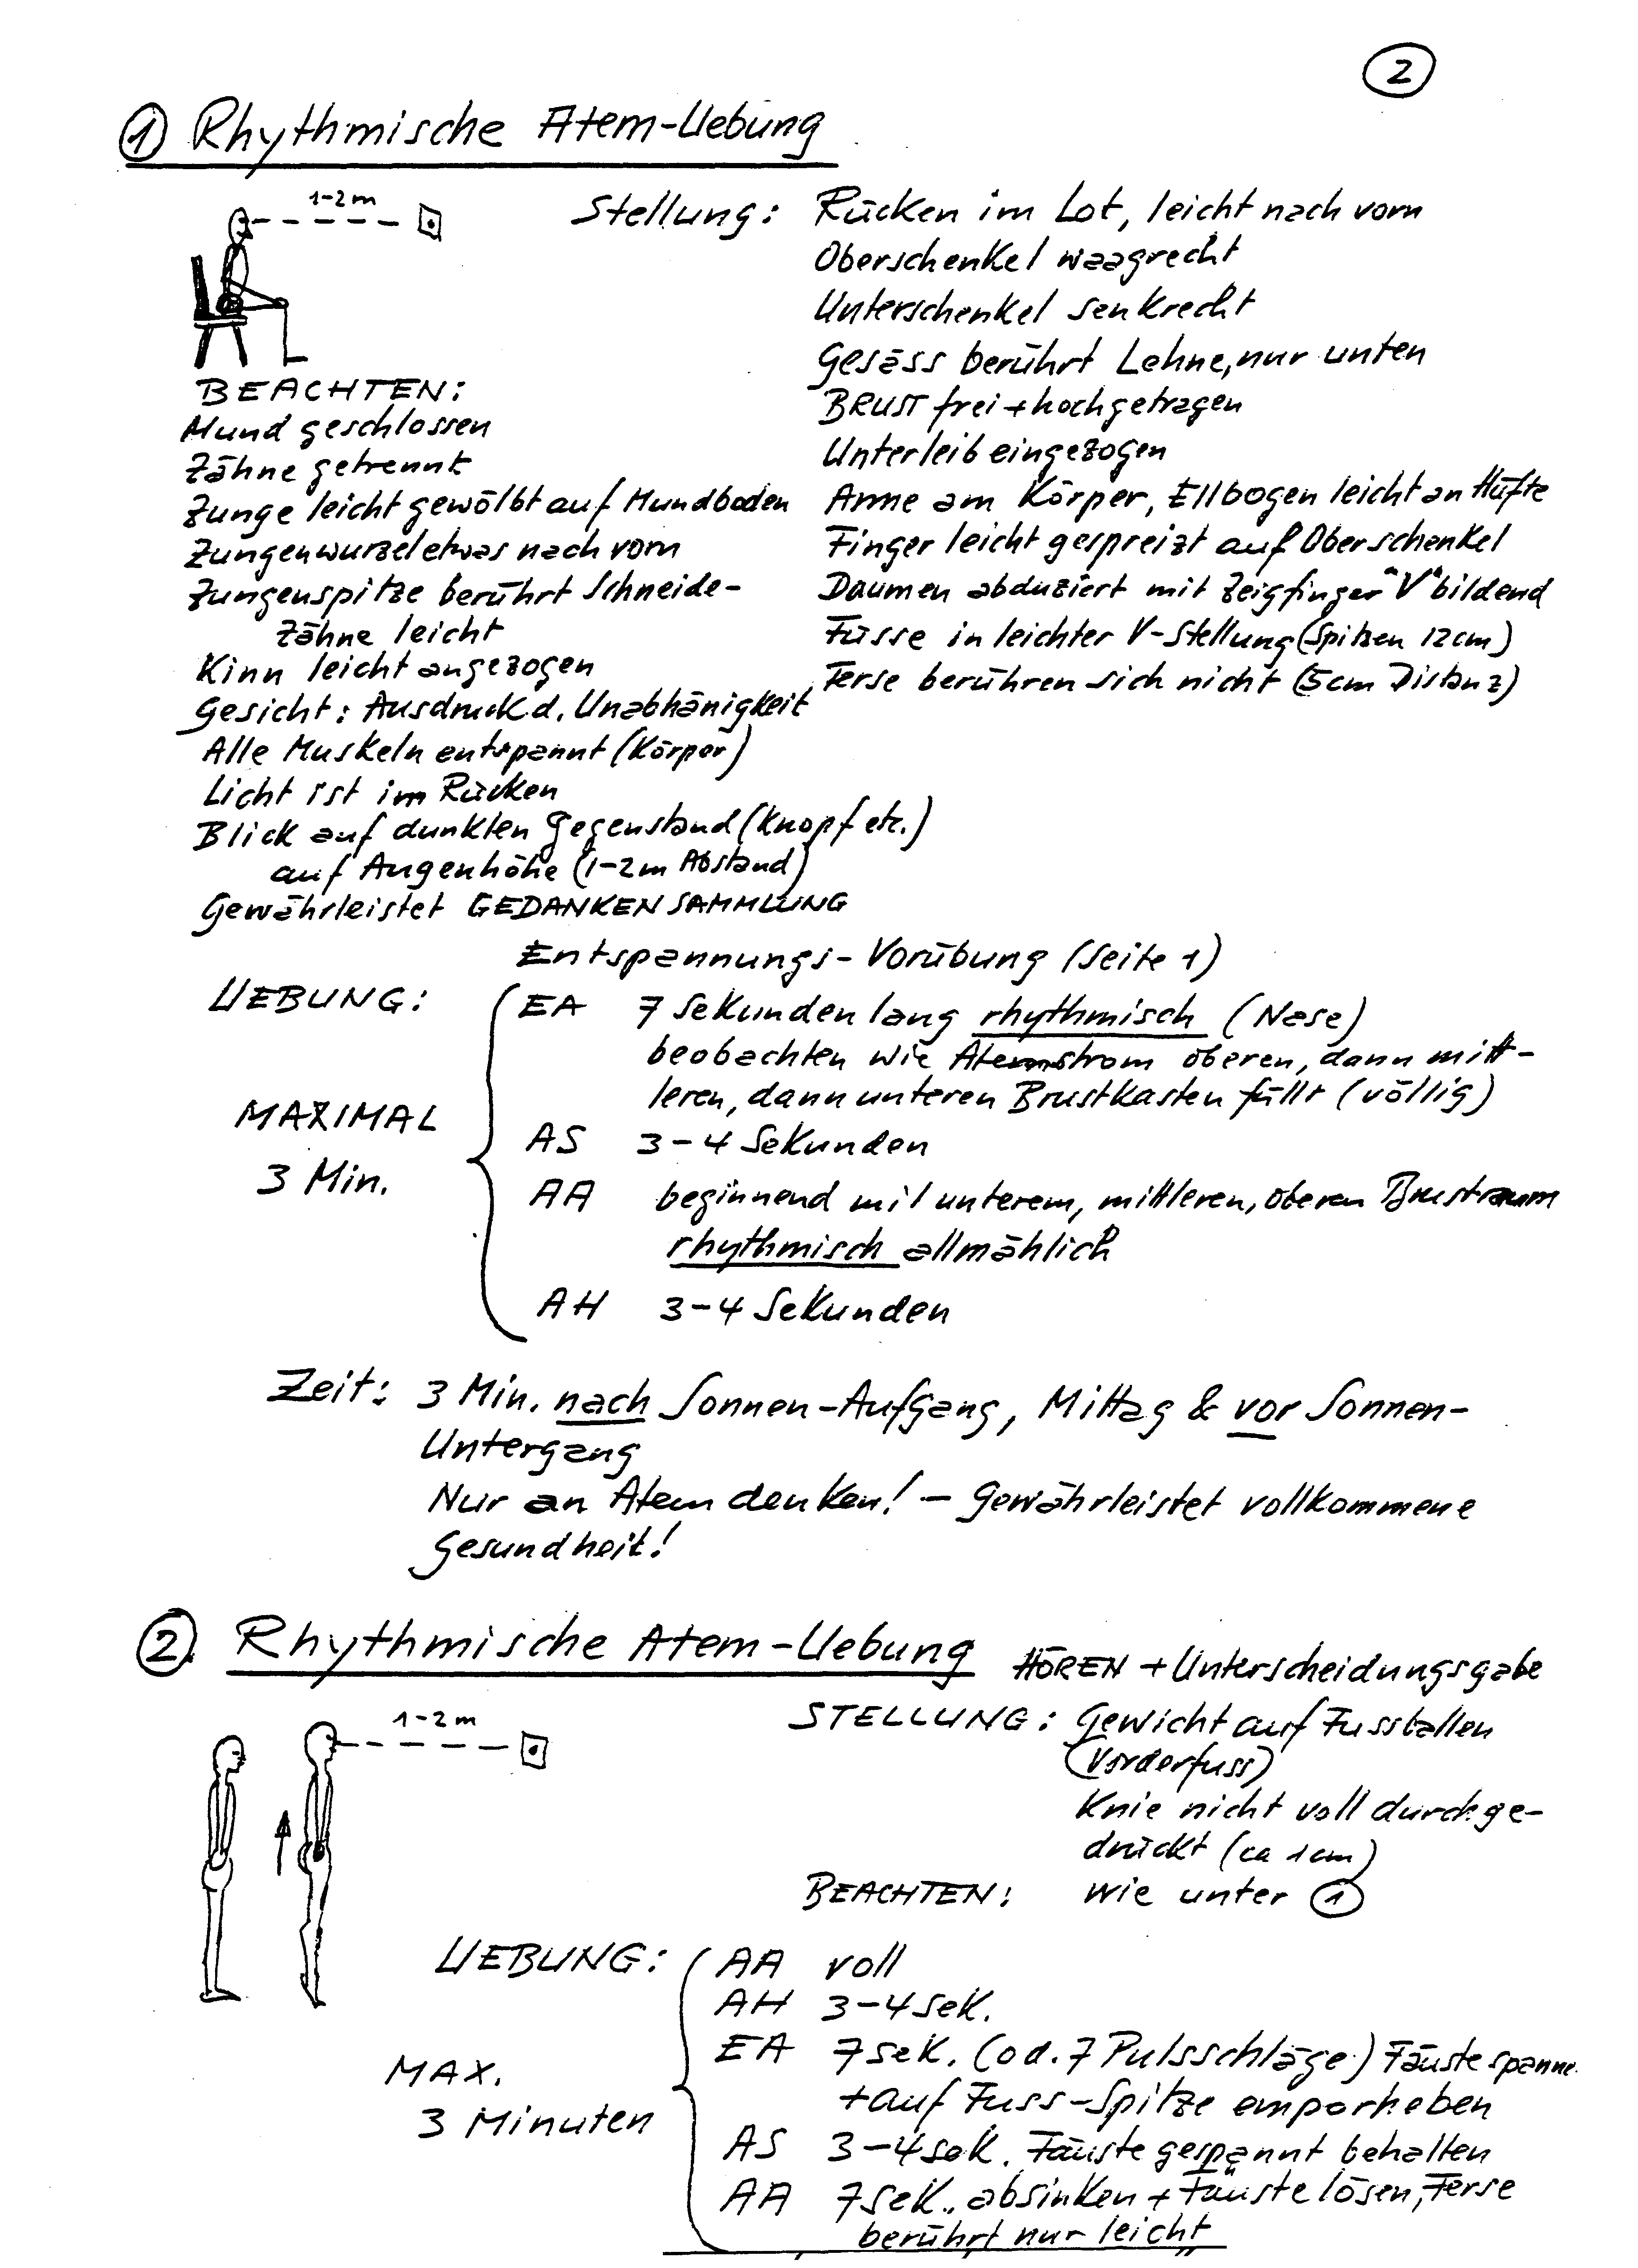 2
1 Rhythmische Atem-Uebung
1-2m
Stellung: Rücken im Lot, leicht nach vorn
Oberschenkel waagrecht
Unterschenkel senkrecht
Gesäss berührt Lehne, nur unten
BRUST frei + hochgetragen
Unterleib eingezogen
Arme am Körper, Ellbogen leicht an Hüfte
Finger leicht gespreizt auf Oberschenkel
Daumen abduziert mit Zeigfinger "V" bildend
Füsse in leichter V-Stellung (Spitzen 12cm)
Ferse berühren sich nicht (5cm Distanz)
BEACHTEN:
Mund geschlossen
Zähne getrennt
Zunge leicht gewölbt auf Mundboden
Zungenwurzel etwas nach vorn
Zungenspitze berührt Schneide-
zähne leicht
Kinn leicht angezogen
Gesicht: Ausdruck d. Unabhänigkeit
Alle Muskeln entspannt (Körper)
Licht ist im Rücken
Blick auf dunklen Gegenstand (Knopf etc.)
auf Augenhöhe (1-2m Abstand)
Gewährleistet GEDANKENSAMMLUNG
Entspannungs-Vorübung (Seite 1)
UEBUNG:
MAXIMAL
3 Min.
EA 7 Sekunden lang rhythmisch (Nase)
beobachten wie Atemstrom oberen, dann mitt-
leren, dann unteren Brustkasten füllt (völlig)
AS 3-4 Sekunden
AA beginnend mit unterem, mittleren, oberen Brustraum
rhythmisch allmählich
AH 3-4 Sekunden
Zeit: 3 Min. nach Sonnen-Aufgang, Mittag & vor Sonnen-
Untergang
Nur an Atem denken! - Gewährleistet vollkommene
Gesundheit!
2. Rhythmische Atem-Uebung HÖREN + Unterscheidungsgabe
1-2m
STELLUNG: Gewicht auf Fussballen
(Vorderfuss)
Knie nicht voll durchge-
drückt (ca 1cm)
BEACHTEN: Wie unter 1
UEBUNG:
MAX.
3 Minuten
AA voll
AH 3-4 Sek.
EA 7 Sek. (od. 7 Pulsschläge) Fäuste spanne.
+ auf Fuss-Spitze emporheben
AS 3-4 Sek. Fäuste gespannt behalten
AA 7 Sek. absinken + Fäuste lösen, Ferse
berührt nur leicht